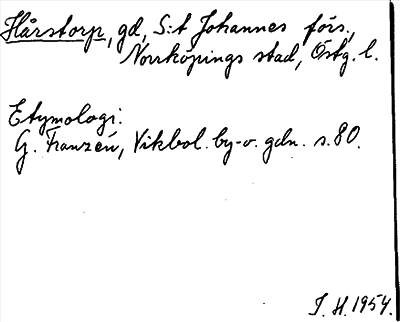 Hårstorp, gd, S:t Johannes förs.,
Norrköpings stad, Östg. l.
Etymologi:
G. Franzén, Vikbol. by-o. gdn. s. 80.
I. H. 1954.